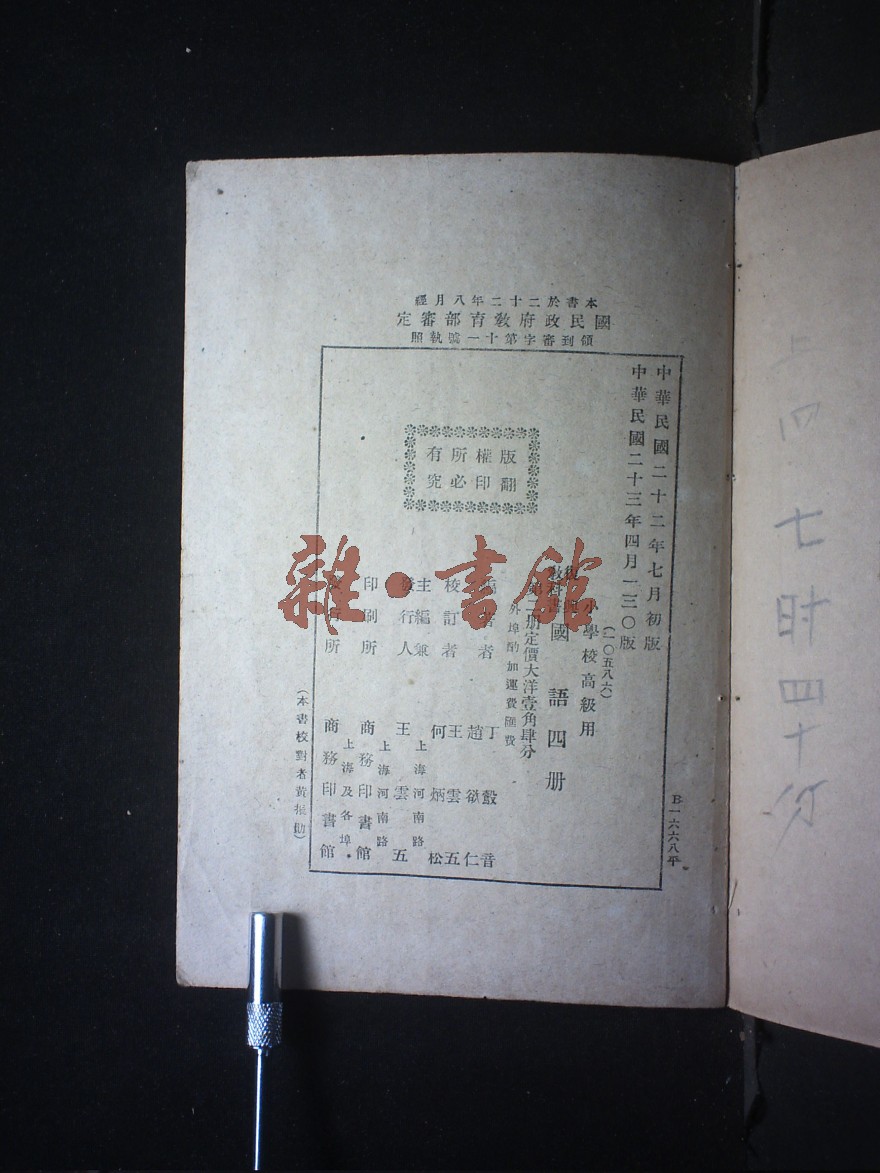 本書於二十二年八月經
國民政府教育部審定
領到審字第十一號執照
中華民國二十二年七月初版
中華民國二十三年四月一三〇版
(一〇五八六)
小學校高級用
復興
教科書
國語四册
第二册定價大洋壹角肆分
外埠酌加運費匯費
版權所有
翻印必究
編著者
丁㲄音
趙欲仁
校訂者
王雲五
何炳松
主編兼
發行人
上海河南路
王雲五
印刷所
上海河南路
商務印書館
發行所
上海及各埠
商務印書館
(本書校對者黃振勛)
B一六六八平
雜·書館
上四
七时四十分